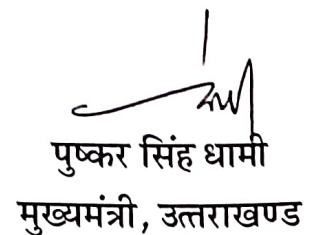 पुष्कर सिंह धामी
मुख्यमंत्री, उत्तराखण्ड